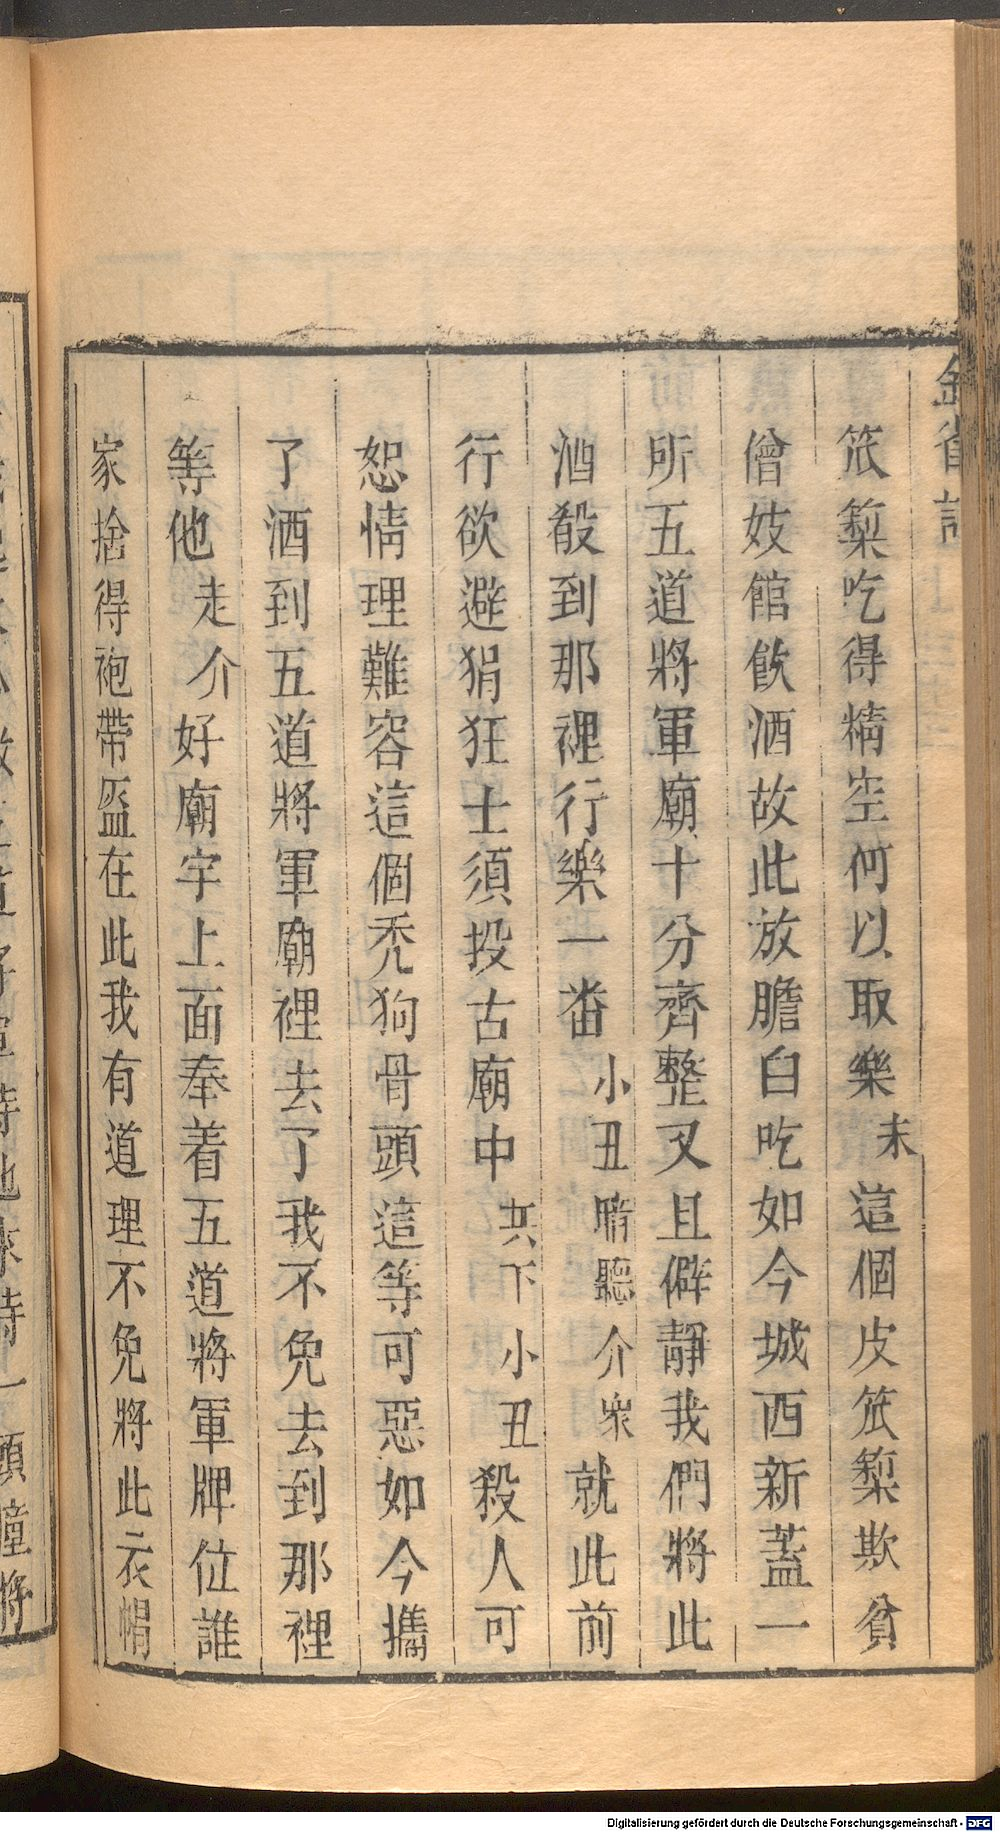 金雀記
笊篱吃得精空何以取樂末這個皮笊篱欺貧
僧妓館飲酒故此放膽白吃如今城西新蓋一
所五道將軍廟十分齊整又且僻靜我們將此
酒殽到那裡行樂一番小丑聽介衆就此前
行欲避狷狂士須投古廟中共下小丑殺人可
恕情理難容這個禿狗骨頭這等可惡如今攜
了酒到五道將軍廟裡去了我不免去到那裡
等他走介好廟宇上面奉着五道將軍牌位誰
家捨得袍帶盔在此我有道理不免將此衣帽
一頭撞將
Digitalisierung gefördert durch die Deutsche Forschungsgemeinschaft - DFG